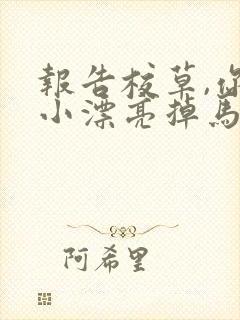 報告校草,你
小漂亮掉馬
阿希里